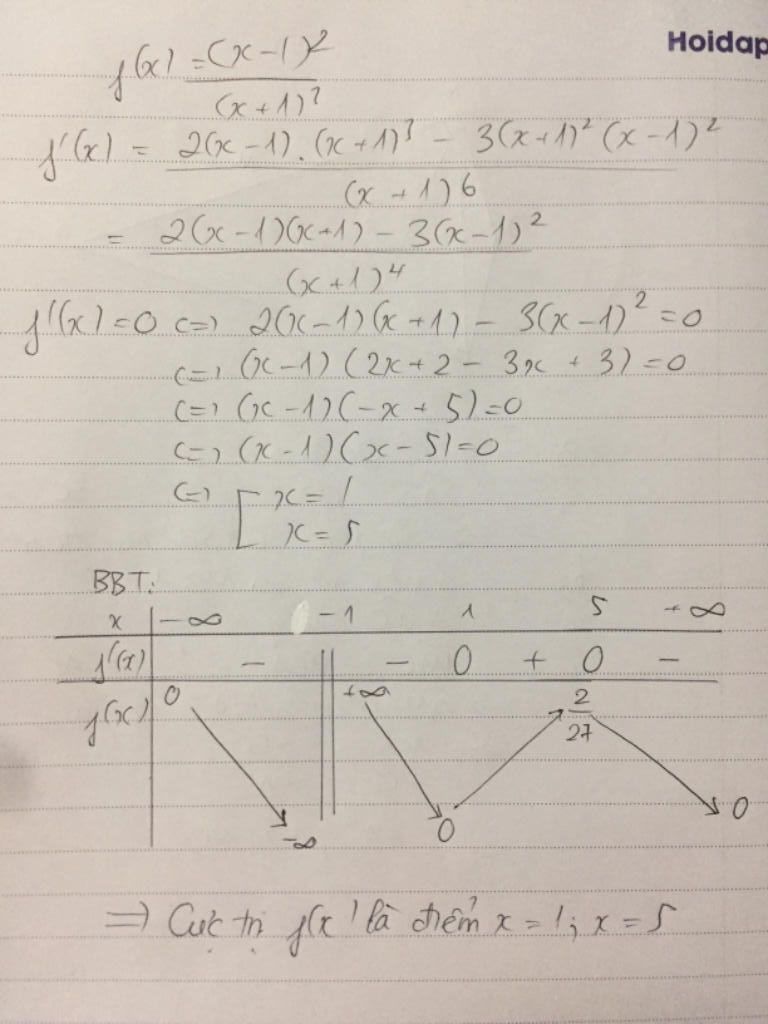 Hoidap
f(x) = (x-1)²
(x+1)³
f'(x) = 2(x-1).(x+1)³ - 3(x+1)²(x-1)²
(x+1)6
= 2(x-1)(x+1) - 3(x-1)²
(x+1)⁴
f'(x)=0 <=> 2(x-1)(x+1) - 3(x-1)² = 0
<=> (x-1)(2x+2 - 3x + 3) = 0
<=> (x-1)(-x+5) = 0
<=> (x-1)(x-5) = 0
<=> [ x = 1
x = 5
BBT:
x -∞ -1 1 5 +∞
f'(x) - || - 0 + 0 -
f(x) 0 +∞ 2/27
-∞ 0 0
=> Cực trị f(x) là điểm x = 1; x = 5